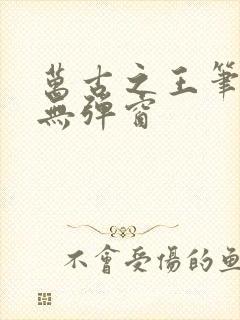 萬古之王筆
無彈窗
不會受傷的魚